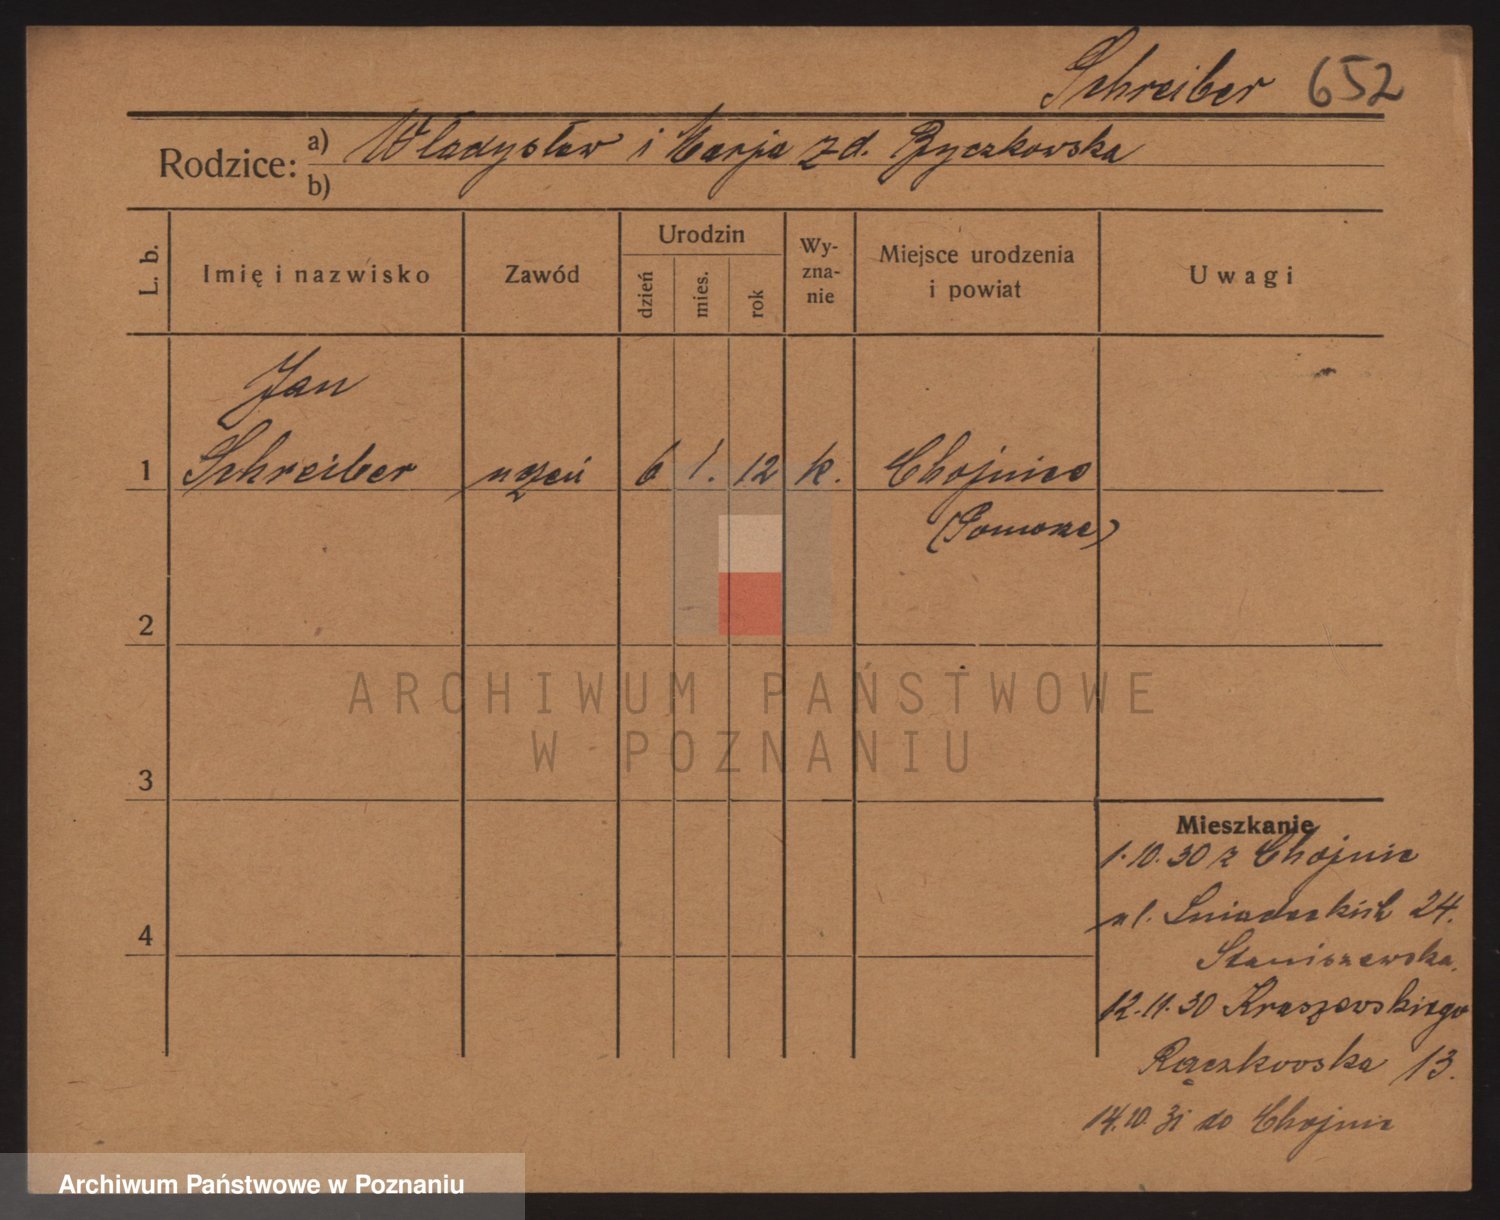 Schreiber 652
Rodzice: a) Władysław i Marja z d. Ryczkowska
b)
L. b. Imię i nazwisko Zawód Urodzin dzień mies. rok Wy-zna-nie Miejsce urodzenia i powiat Uwagi
Jan
1 Schreiber uczeń 6 1. 12 k. Chojnice
(Pomorze)
2
ARCHIWUM PAŃSTWOWE
W POZNANIU
3
Mieszkanie
1.10.30 z Chojnic
ul. Śniadeckich 24.
4
Staniszewska.
12.11.30 Kraszewskiego
Rączkowska 13.
14.10.31 do Chojnic
Archiwum Państwowe w Poznaniu